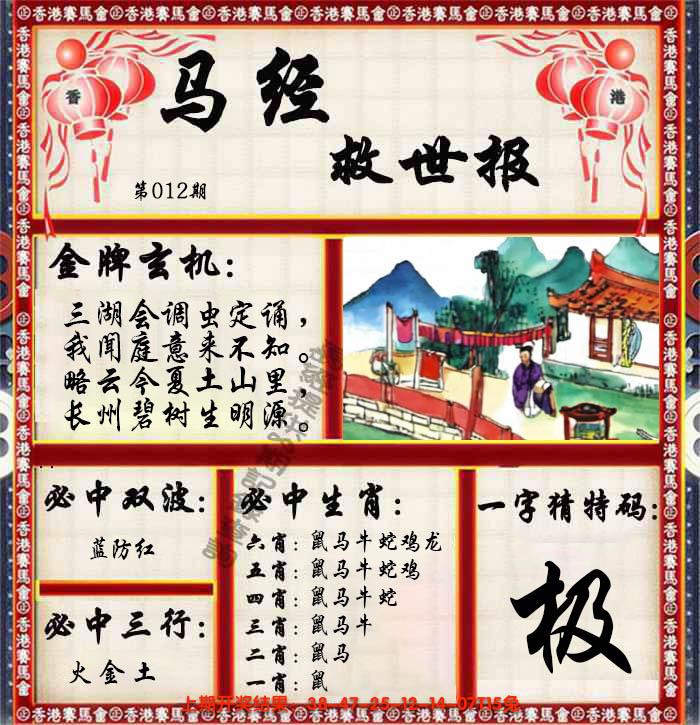 香港賽馬會
香 港
马经
救世报
第012期
金牌玄机：
三湖会调虫定诵，
我闻庭意来不知。
略云今夏土山里，
长州碧树生明源。
必中双波：
蓝防红
必中三行：
火金土
必中生肖：
六肖：鼠马牛蛇鸡龙
五肖：鼠马牛蛇鸡
四肖：鼠马牛蛇
三肖：鼠马牛
二肖：鼠马
一肖：鼠
一字猜特码：
极
上期开奖结果：38-47-25-12-14-07T15兔